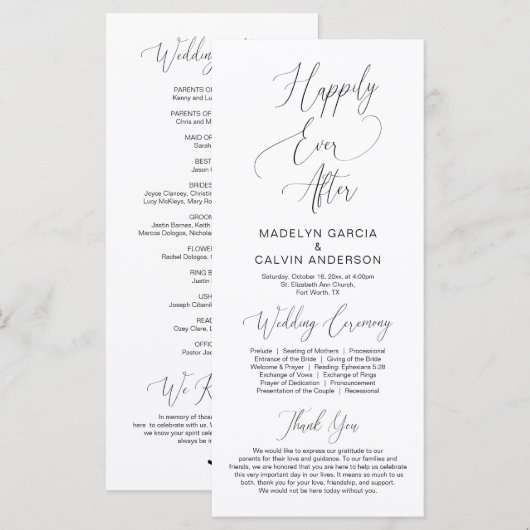 Wedding
PARENTS OF
Kenny and Lu
PARENTS OF
Chris and M
MAID OF
Sarah
BEST
Jason C
BRIDES
Joyce Clancey, Christin
Lucy McKleys, Mary Ro
GROOM
Jastin Barnes, Keith
Marcos Dologos, Nicholas
FLOWER
Rachel Dologos,
RING B
Justin
USH
Joseph Cibanik
READ
Ozey Clare,
OFFIC
Pastor Jac
We R
In memory of those
here to celebrate with us. W
we know your spirit cele
always be in
Happily
Ever
After
MADELYN GARCIA
&
CALVIN ANDERSON
Saturday, October 16, 20xx, at 4:00pm
St. Elizabeth Ann Church,
Fort Worth, TX
Wedding Ceremony
Prelude | Seating of Mothers | Processional
Entrance of the Bride | Giving of the Bride
Welcome & Prayer | Reading: Ephesians 5:28
Exchange of Vows | Exchange of Rings
Prayer of Dedication | Pronouncement
Presentation of the Couple | Recessional
Thank You
We would like to express our gratitude to our
parents for their love and guidance. To our families and
friends, we are honored that you are here to help us celebrate
this very important day in our lives. It means so much to us
both. thank you for your love, friendship, and support.
We would not be here today without you.